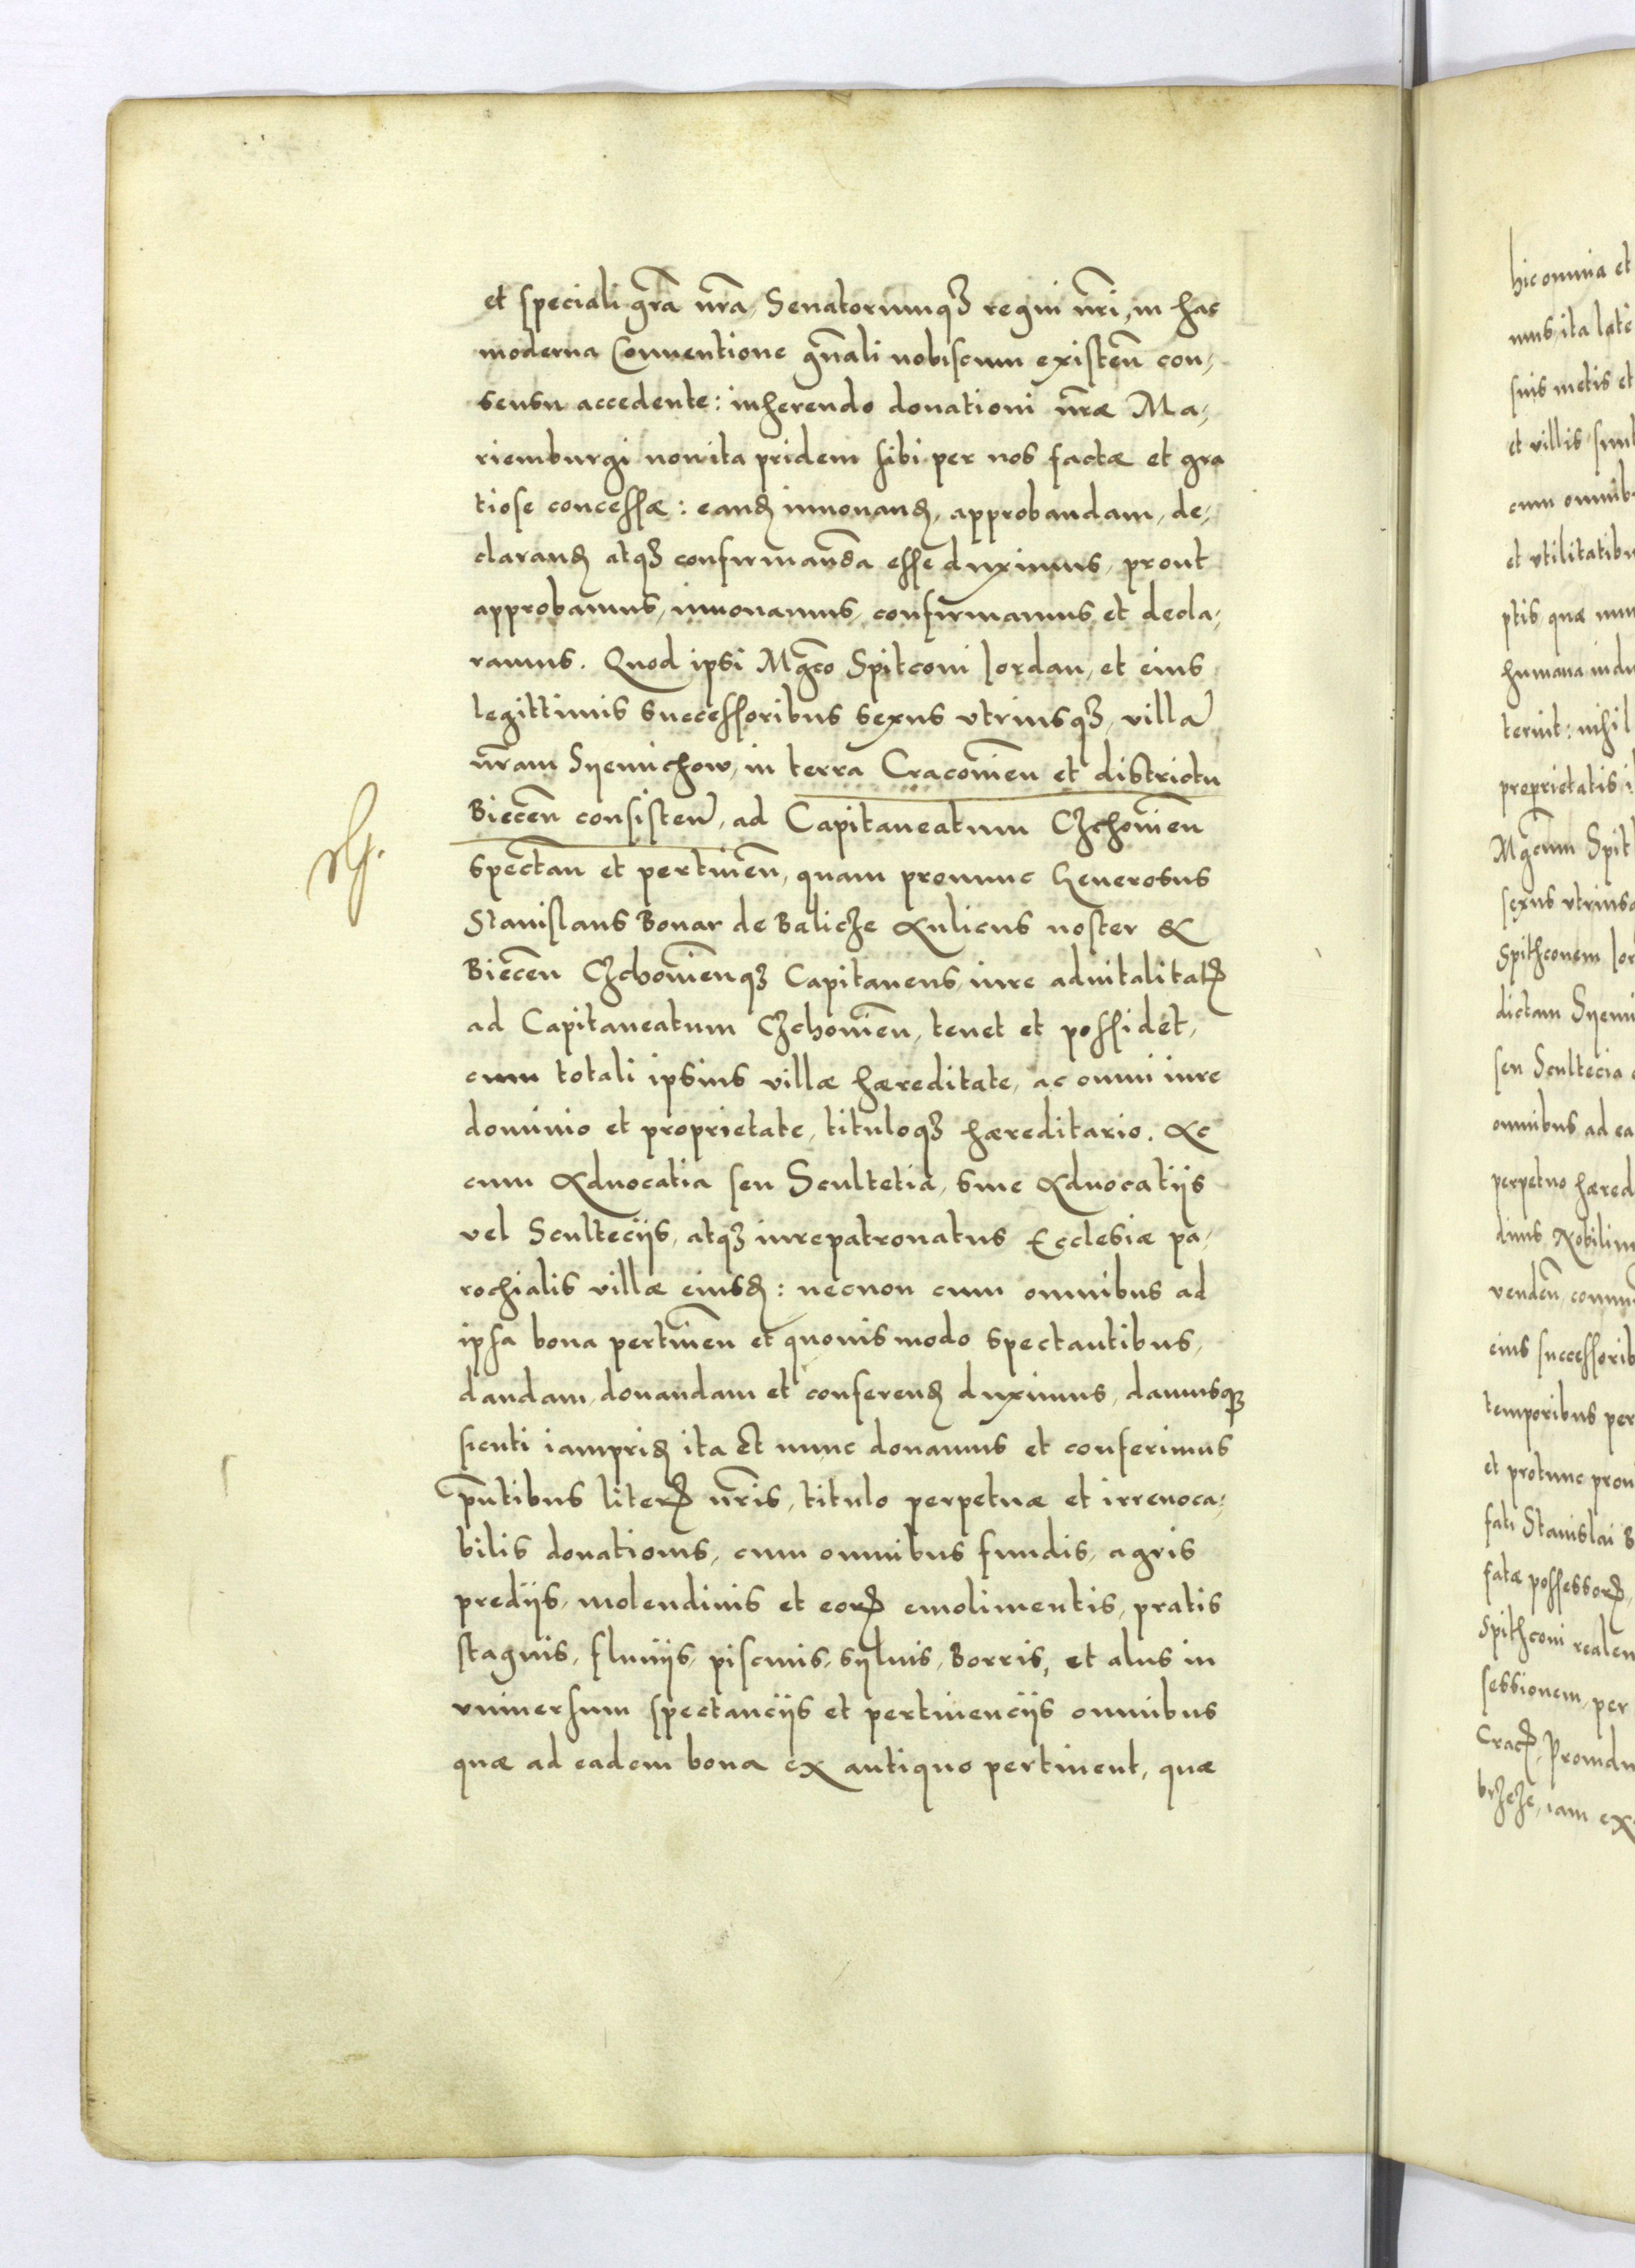 et speciali gr̃a nr̃a, Senatorumqꝫ regni nr̃i, in hac
moderna Conuentione gn̄ali nobiscum existeñ con,
sensu accedente: inherendo donationi nr̃æ Ma,
riemburgi non ita pridem sibi per nos factæ et gra
tiose concessæ: eandꝫ innouandꝫ, approbandam, de,
clarandꝫ atqꝫ confirmandā esse duximus, prout
approbamus, innouamus, confirmamus et decla,
ramus. Quod ipsi Mgc̃o Spitconi Iordan, et eius
legittimis successoribus sexus vtriusqꝫ, villā
nr̃am Syemichow, in terra Cracouieñ et districtu
Bieceñ consisteñ, ad Capitaneatum Czchouieñ
spectañ et pertineñ, quam pronunc Generosus
Stanislaus Bonar de Balicze Aulicus noster &
Bieceñ Czchouieñqꝫ Capitaneus, iure aduitalitatꝭ
ad Capitaneatum Czchouieñ, tenet et possidet,
cum totali ipsius villæ hæreditate, ac omni iure
dominio et proprietate, tituloqꝫ hæreditario. Ac
cum Aduocatia seu Scultetia, siue Aduocatijs
vel Scultecijs, atqꝫ iurepatronatus Ecclesiæ pa,
rochialis villæ eiusdꝫ: necnon cum omnibus ad
ipsa bona pertineñ et quouis modo spectantibus,
dandam, donandam et conferendꝫ duximus, damusqꝫ
sicuti iampridꝫ ita et nunc donamus et conferimus
pñtibus literꝭ nr̃is, titulo perpetuæ et irreuoca,
bilis donationis, cum omnibus fundis, agris
predijs, molendinis et eorꝝ emolimentis, pratis
stagnis, fluuijs, piscinis, syluis, Borris, et alijs in
vniuersum spectancijs et pertinencijs omnibus
quæ ad eadem bona ex antiquo pertinent, quæ
hic omnia et
suis metis et
et villis
cum omnib
et vtilitatibu
ptis, quæ nun
humana indu
terint: nihil
proprietatis i
Mgc̃um Spit
sexus vtrius
Spithconem Ior
dictam Syemi
seu Scultecia
omnibus ad ea
perpetuo hæred
Nobilium
eius successorib
temporibus per
et protunc
fati Stanislai B
fatæ possessorꝭ,
Spithconi realem
sessionem, per
iam ex